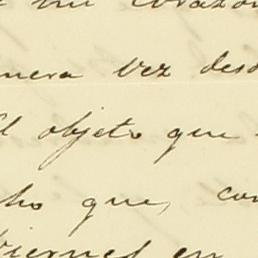 mi corazon
mera vez desd
el objeto que
cho que, con
viernes en